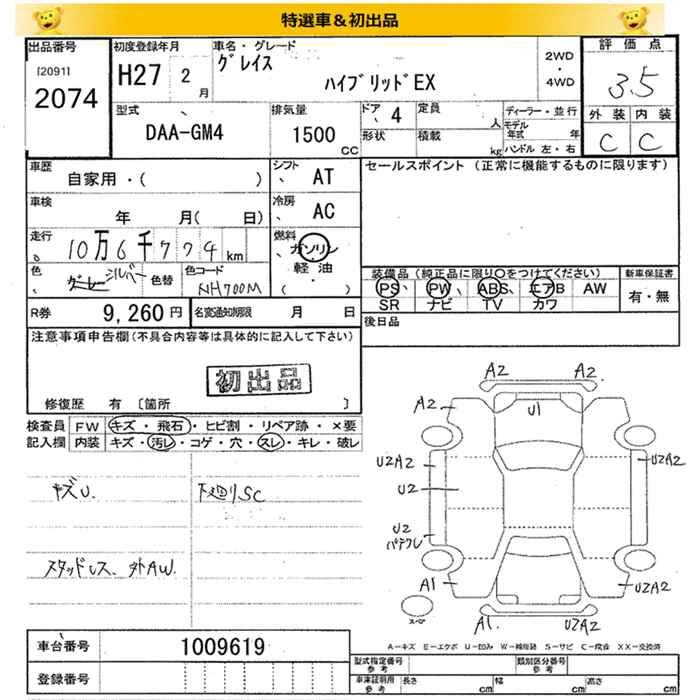 特選車&初出品
出品番号
I20911
2074
初度登録年月
H27 2月
車名・グレード
グレイス
ハイブリッドEX
2WD
・
4WD
評価点
3.5
外装 内装
C C
型式
DAA-GM4
排気量
1500 CC
ドア 4
形状
定員 人
積載 kg
ディーラー・並行
モデル年式 年
ハンドル 左・右
車歴
自家用・( )
シフト AT
車検
年 月( 日)
冷房 AC
走行
10万6千774km
燃料
ガソリン
軽油
( )
色
グレー シルバー
色替
色コード
NH700M
R券 9,260円
名変通知期限 月 日
セールスポイント (正常に機能するものに限ります)
装備品 (純正品に限り○をつけてください)
PS PW ABS エアB AW
SR ナビ TV カワ
新車保証書
有・無
後日品
注意事項申告欄(不具合内容等は具体的に記入して下さい)
初出品
修復歴 有 〔箇所 〕
検査員記入欄
FW キズ・飛石・ヒビ割・リペア跡・×要
内装 キズ・汚レ・コゲ・穴・スレ・キレ・破レ
キズU.
下廻りSC
スタッドレス、外AW.
A2 A2
A2 U1 A2
U2A2 U2A2
U2
U2
A1 U2A2
スペア
A1. U2A2
A−キズ E−エクボ U−凹み W−補修跡 S−サビ C−腐食 XX−交換済
車台番号 1009619
登録番号
型式指定番号 参考
類別区分番号 参考
車庫証明用 参考
長さ cm
幅 cm
高さ cm